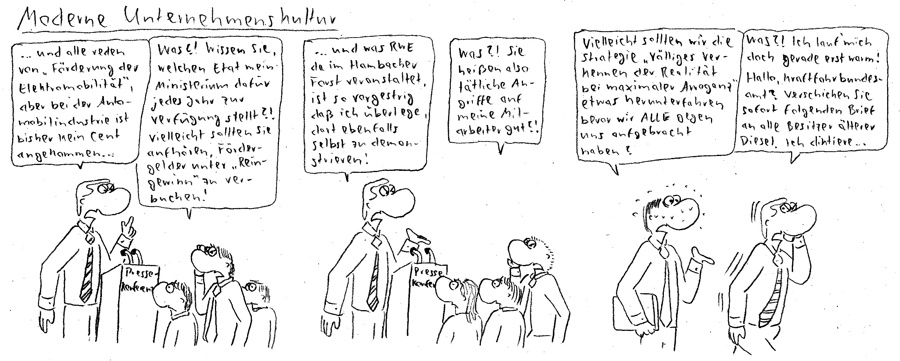 Moderne Unternehmenskultur
... und alle reden
von „Förderung der
Elektromobilität",
aber bei der Auto-
mobilindustrie ist
bisher kein Cent
angekommen...
Was?! Wissen Sie,
welchen Etat mein
Ministerium dafür
jedes Jahr zur
Verfügung stellt?!
Vielleicht sollten Sie
aufhören, Förder-
gelder unter „Rein-
gewinn" zu ver-
buchen!
Presse-
konferenz
... und was RWE
im Hambacher
Forst veranstaltet,
ist so vorgestrig
daß ich überlege,
dort ebenfalls
selbst zu demon-
strieren!
Was?! Sie
heißen also
tätliche An-
griffe auf
meine Mit-
arbeiter gut?!
Presse
konfer
Vielleicht sollten wir die
Strategie „Völliges Ver-
kennen der Realität
bei maximaler Arroganz"
etwas herunterfahren
bevor wir ALLE gegen
uns aufgebracht
haben?
Was?! Ich lauf' mich
doch gerade erst warm!
Hallo, Kraftfahrbundes-
amt? Verschicken Sie
sofort folgenden Brief
an alle Besitzer älterer
Diesel. Ich diktiere...